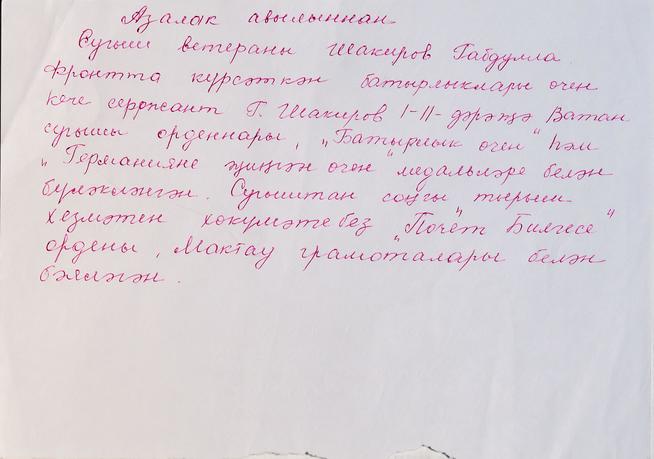 Азалак авылыннан
Сугыш ветераны Шакиров Габдулла
Фронтта күрсәткән батырлыклары өчен
кече сержант Г. Шакиров I-II- дәрәҗә Ватан
сугышы орденнары, „Батырлык өчен" һәм
„Германияне җиңгән өчен" медальләре белән
бүләкләнгән. Сугыштан соңгы тырыш
хезмәтен хөкүмәтебез „Почёт Билгесе"
ордены, Мактау грамоталары белән
бәяләгән.